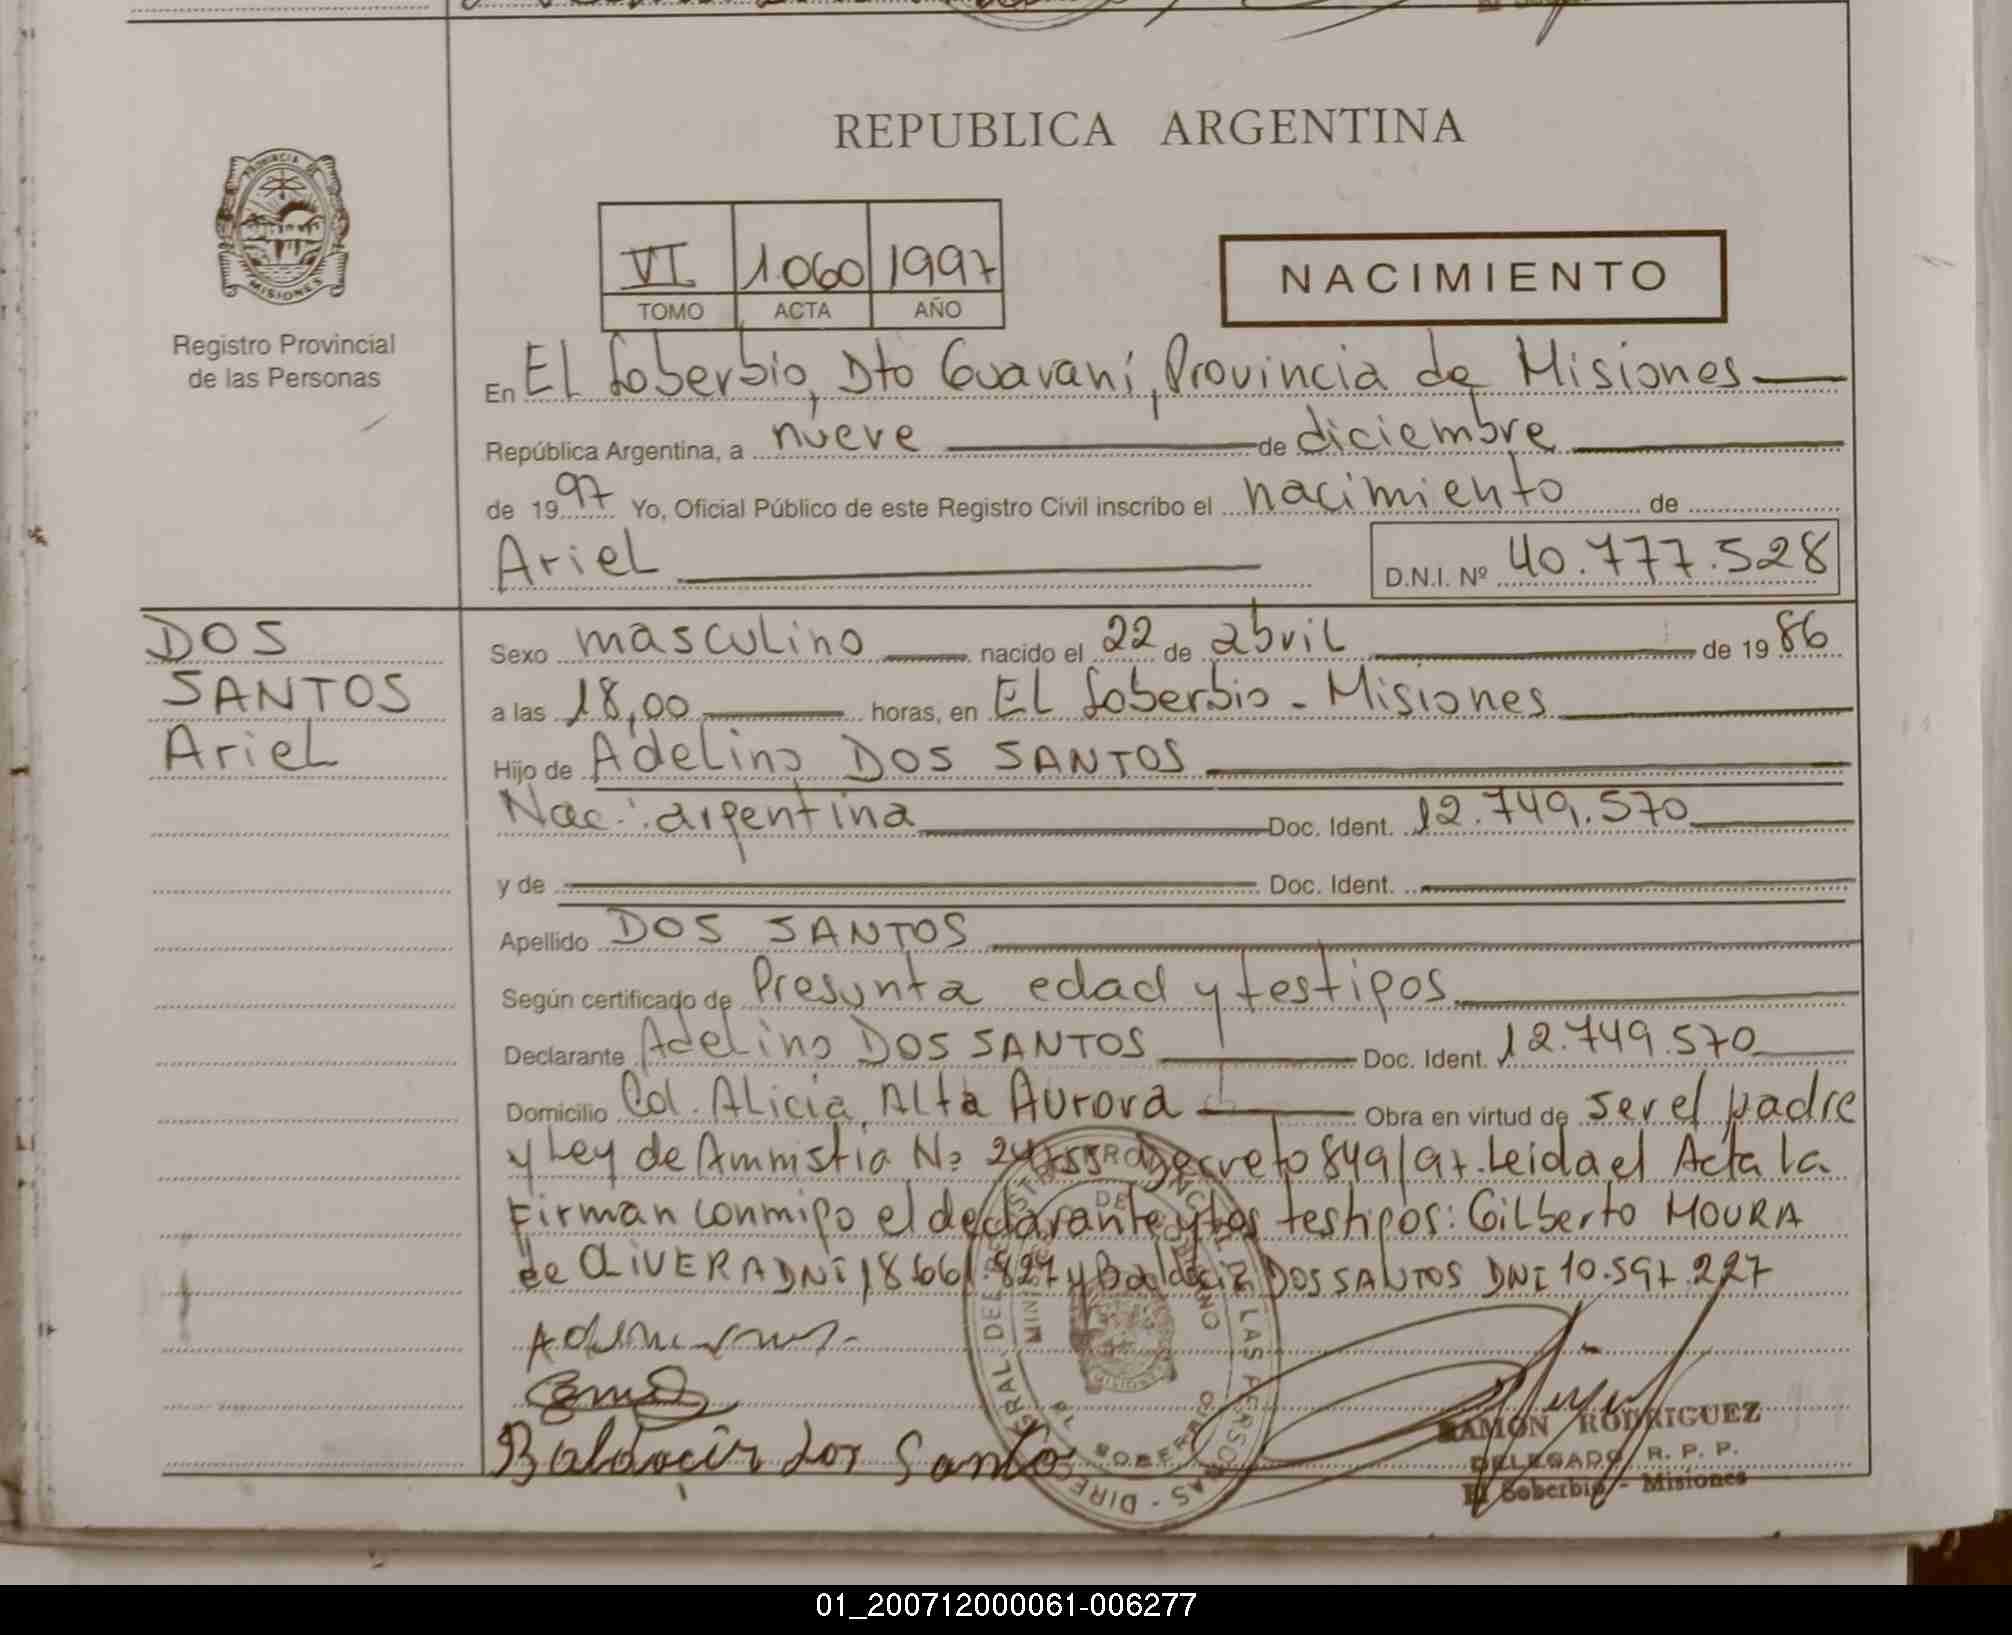 REPUBLICA ARGENTINA
PROVINCIA DE
MISIONES
Registro Provincial
de las Personas
VI 1060 1997
TOMO ACTA AÑO
NACIMIENTO
En El Soberbio, Dto Guaraní, Provincia de Misiones
República Argentina, a nueve de diciembre
de 1997 Yo, Oficial Público de este Registro Civil inscribo el nacimiento de
Ariel
D.N.I. Nº 40.777.528
DOS
SANTOS
Ariel
Sexo masculino nacido el 22 de abril de 1986
a las 18,00 horas, en El Soberbio - Misiones
Hijo de Adelino DOS SANTOS
Nac: argentina Doc. Ident. 12.749.570
y de Doc. Ident.
Apellido DOS SANTOS
Según certificado de Presunta edad y testigos
Declarante Adelino DOS SANTOS Doc. Ident. 12.749.570
Domicilio Col. Alicia, Alta Aurora Obra en virtud de ser el padre
y Ley de Amnistia Nº Decreto 849/97. Leida el Acta la
Firman conmigo el declarante y los testigos: Gilberto MOURA
de OLIVERA DNI y Baldacir DOS SANTOS DNI 10.597.227
Baldacir dos Santo
RAMON RODRIGUEZ
DELEGADO R. P. P.
El Soberbio - Misiones
01_200712000061-006277